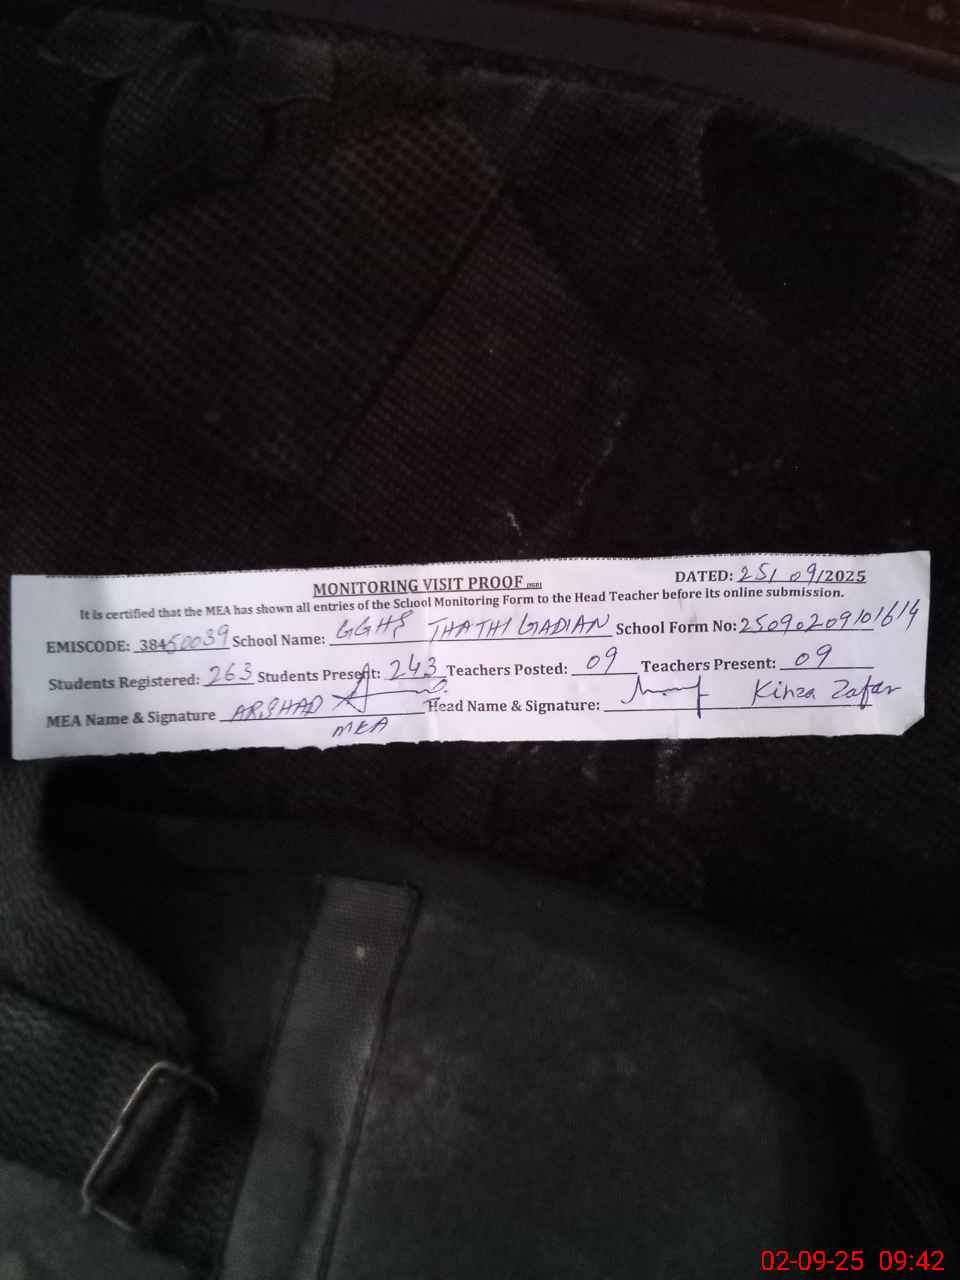 MONITORING VISIT PROOF
DATED: 25/09/2025
It is certified that the MEA has shown all entries of the School Monitoring Form to the Head Teacher before its online submission.
EMISCODE: 38450039 School Name: GGHS THATHI GADIAN School Form No: 2509020910 1614
Students Registered: 263 Students Present: 243 Teachers Posted: 09 Teachers Present: 09
MEA Name & Signature ARSHAD Head Name & Signature: Kinza Zafar
MEA
02-09-25 09:42